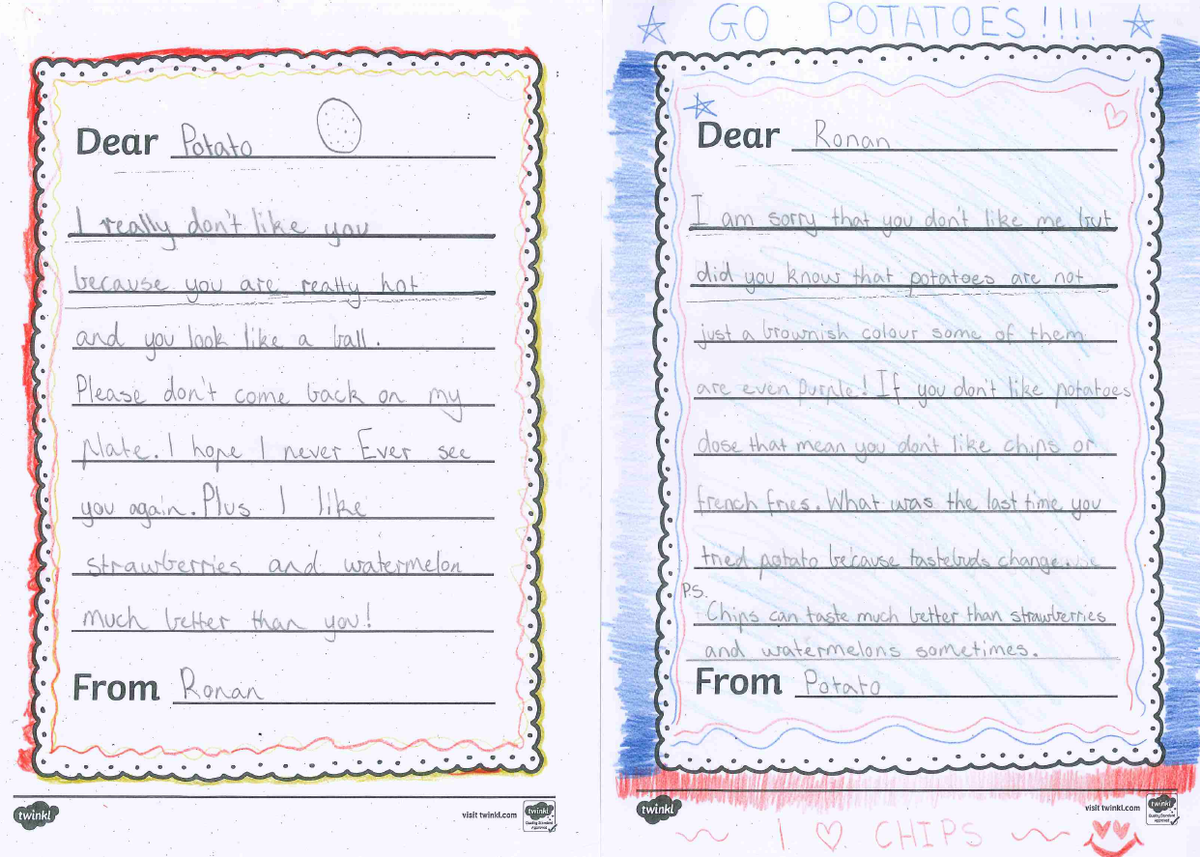 Dear Potato
I really don't like you
because you are really hot
and you look like a ball.
Please don't come back on my
plate. I hope I never Ever see
you again. Plus I like
strawberries and watermelon
much better than you!
From Ronan
twinkl
visit twinkl.com
twinkl
Quality Standard
Approved
GO POTATOES!!!!
Dear Ronan
I am sorry that you don't like me but
did you know that potatoes are not
just a brownish colour some of them
are even purple! If you don't like potatoes
dose that mean you don't like chips or
french fries. What was the last time you
tried potato because tastebuds change.
P.S.
Chips can taste much better than strawberries
and watermelons sometimes.
From Potato
twinkl
visit twinkl.com
twinkl
Quality Standard
Approved
I ♡ CHIPS